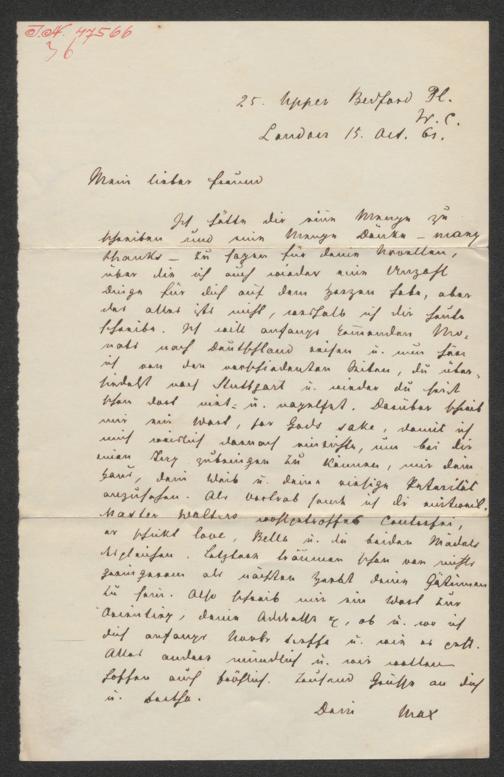 J.N. 77566
36
25. Upper Bedford Pl.
W. C.
London 15. Oct. 61.
Mein lieber Freund
Ich hätte dir eine Menge zu
schreiben und eine Menge Danke – many
thanks – zu sagen für deine Novellen,
über die ich auch wieder eine Anzahl
Dinge für dich auf dem Herzen habe, aber
das alles ists nicht, weshalb ich dir heute
schreibe. Ich will anfangs kommenden Mo-
nats nach Deutschland reisen u. nun höre
ich von den verschiedensten Seiten, du über-
siedelst nach Stuttgart u. wieder du seist
schon dort niet- u. nagelfest. Darüber schreib
mir ein Wort, for Gods sake, damit ich
mich weislich darnach einrichte, um bei dir
einen Tag zubringen zu können, mir dein
Haus, dein Weib u. deine
anzusehen. Als Vortrab sende ich dir
Master Walters wohlgetroffnes Conterfei,
er schickt love, Bella u. die beiden Mädels
desgleichen. Letztere träumen schon von nichts
geringerem als nächsten Herbst deine
zu sein. Also schreib mir ein Wort zur
deine Adresse &, ob u. wo ich
dich anfangs Novbr treffe u. wie es geht.
Alles andere mündlich u. wir wollen
hoffen auch fröhlich. Tausend Grüße an dich
u. Bertha.
Dein Max